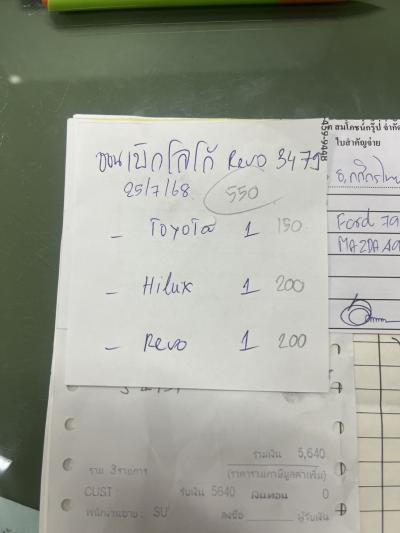 ขอเบิกโลโก้ Revo 3479
25/7/68 550
- Toyota 1 150
- Hilux 1 200
- Revo 1 200
459-9448
สมโภชน์กรุ๊ป จำกัด
ใบสำคัญจ่าย
Ford 79
MAZDA
รวมเงิน 5,640
รวม 3 รายการ (ราคารวมภาษีมูลค่าเพิ่ม)
CUST : รับเงิน 5640 เงินทอน 0
พนักงานขาย : SU ลงชื่อ ผู้รับเงิน